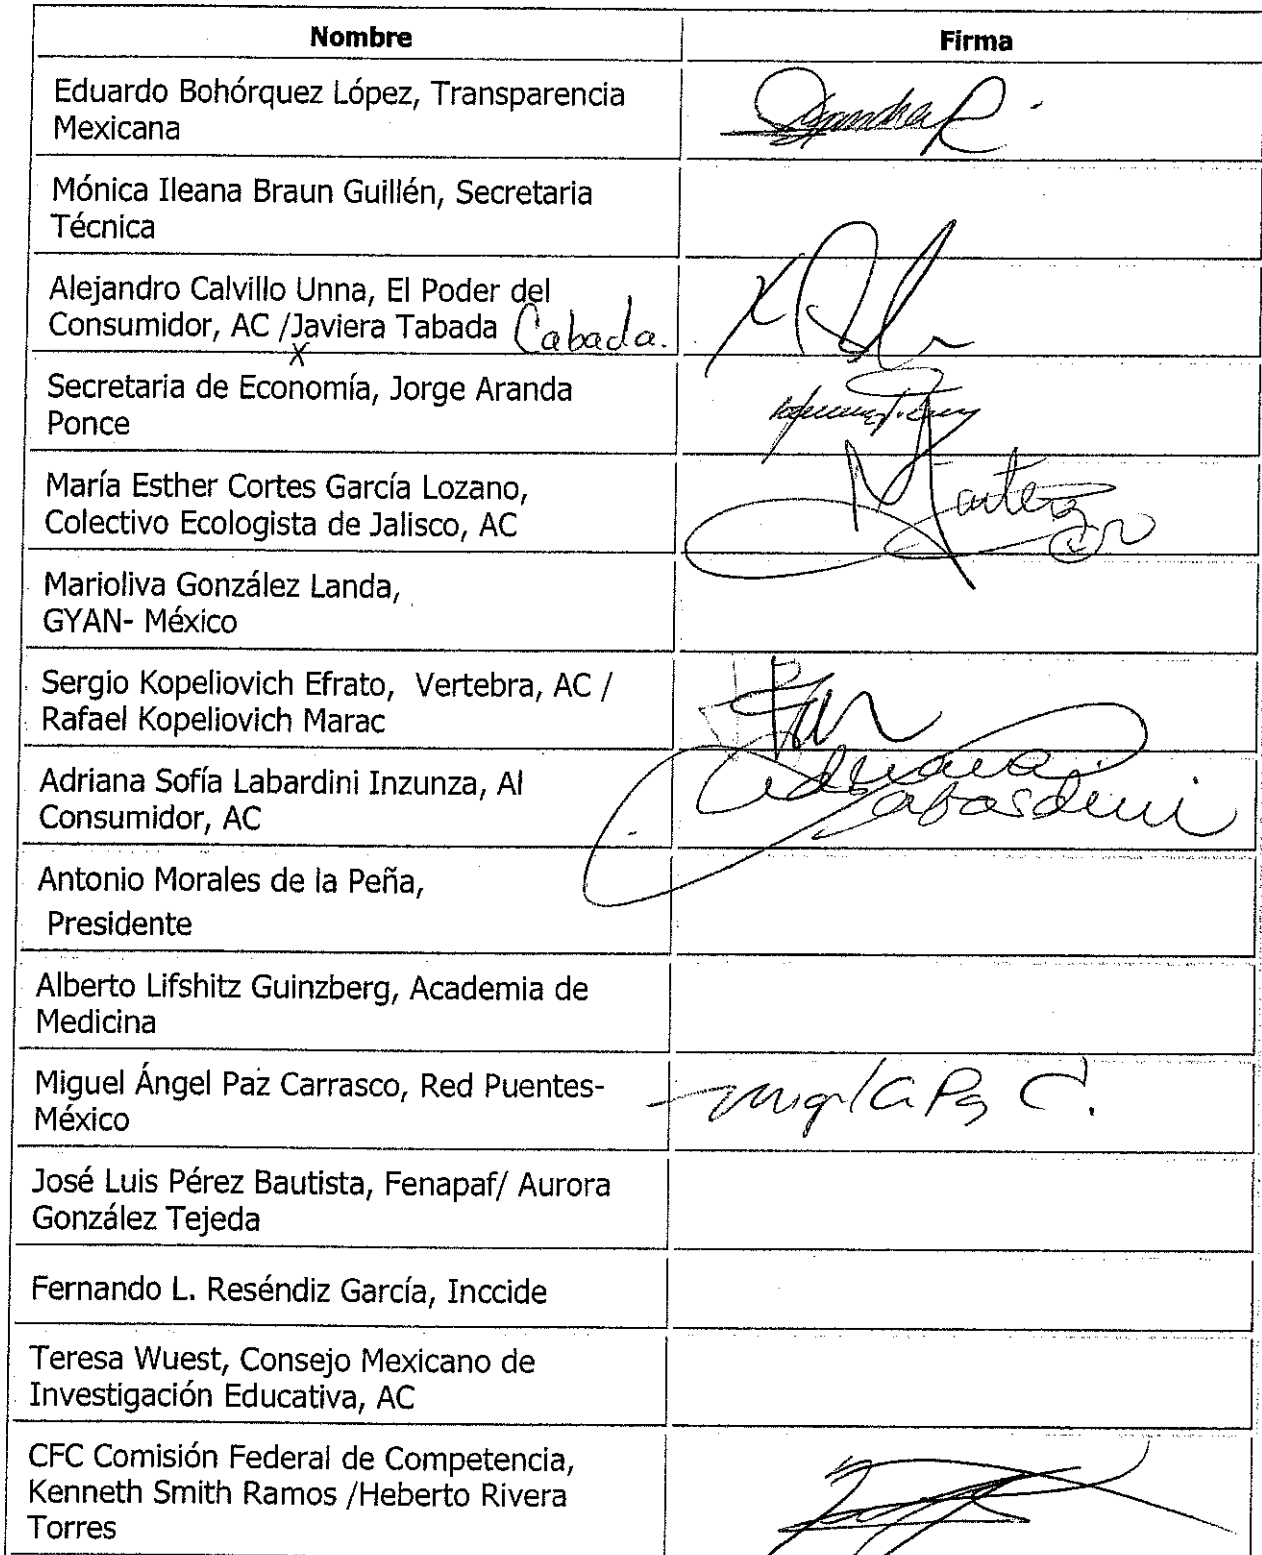 Nombre
Firma
Eduardo Bohórquez López, Transparencia
Mexicana
Mónica Ileana Braun Guillén, Secretaria
Técnica
Alejandro Calvillo Unna, El Poder del
Consumidor, AC /Javiera Tabada Cabada.
x
Secretaria de Economía, Jorge Aranda
Ponce
María Esther Cortes García Lozano,
Colectivo Ecologista de Jalisco, AC
Marioliva González Landa,
GYAN- México
Sergio Kopeliovich Efrato, Vertebra, AC /
Rafael Kopeliovich Marac
Adriana Sofía Labardini Inzunza, Al
Consumidor, AC
Adriana
Labardini
Antonio Morales de la Peña,
Presidente
Alberto Lifshitz Guinzberg, Academia de
Medicina
Miguel Ángel Paz Carrasco, Red Puentes-
México
José Luis Pérez Bautista, Fenapaf/ Aurora
González Tejeda
Fernando L. Reséndiz García, Inccide
Teresa Wuest, Consejo Mexicano de
Investigación Educativa, AC
CFC Comisión Federal de Competencia,
Kenneth Smith Ramos /Heberto Rivera
Torres